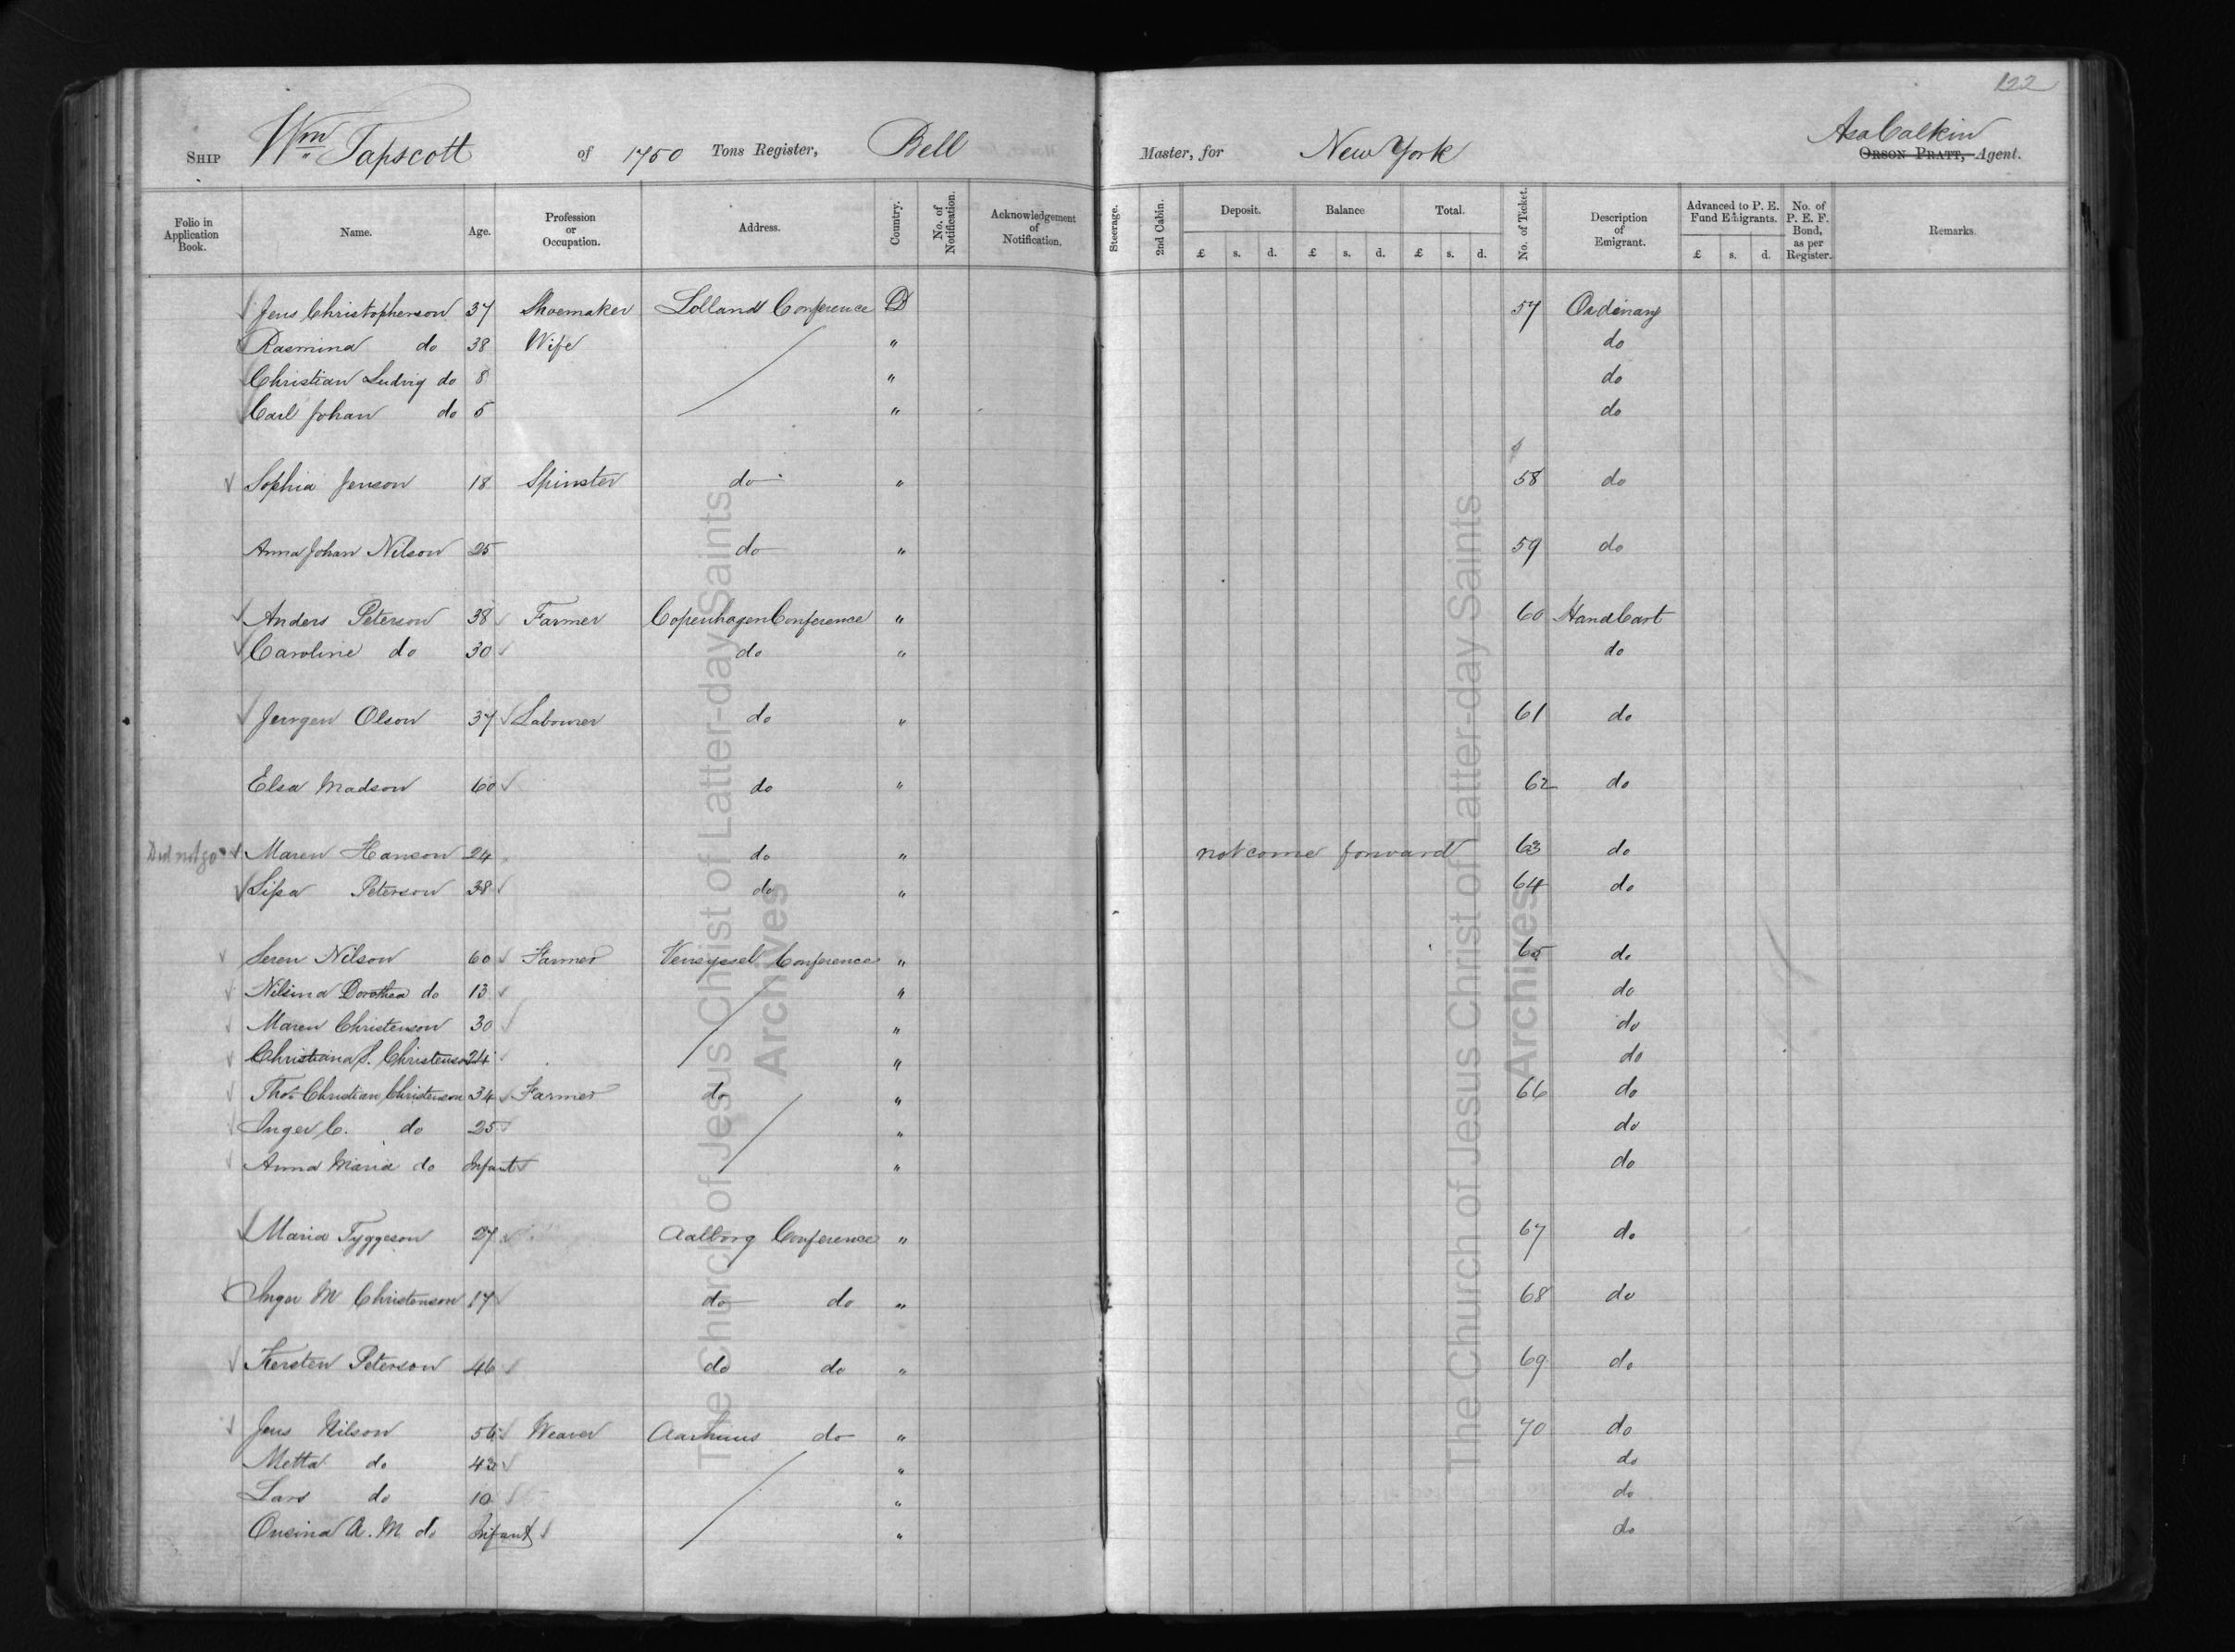 122
Ship Wm Tapscott of 1750 Tons Register, Bell Master, for New York Asa Calkin Orson Pratt, Agent.
Folio in Application Book. Name. Age. Profession or Occupation. Address. Country. No. of Notification. Acknowledgement of Notification. Steerage. 2nd Cabin. Deposit. Balance Total. No. of Ticket. Description of Emigrant. Advanced to P. E. Fund Emigrants. No. of P. E. F. Bond, as per Register. Remarks.
£ s. d. £ s. d. £ s. d. £ s. d.
Jens Christopherson 37 Shoemaker Lolland Conference D 57 Ordinary
Rasmina do 38 Wife " do
Christian Ludvig do 8 " do
Carl Johan do 5 " do
Sophia Jenson 18 Spinster do " 58 do
Anna Johan Nilson 25 do " 59 do
Anders Peterson 38 Farmer Copenhagen Conference " 60 HandCart
Caroline do 30 do " do
Jeurgen Olson 37 Labourer do " 61 do
Elsa Madson 60 do " 62 do
Did not go Maren Hanson 24 do " not come forward 63 do
Sissa Peterson 38 do " 64 do
Seren Nilson 60 Farmer Vensyssel Conference " 65 do
Nilsina Dorothea do 13 " do
Maren Christenson 30 " do
Christiana S. Christenson 24 " do
Thos Christian Christenson 34 Farmer do " 66 do
Inger C. do 25 " do
Anna Maria do Infant " do
Maria Tyggeson 27 Aalborg Conference " 67 do
Inger M Christenson 17 do do " 68 do
Kersten Peterson 46 do do " 69 do
Jens Nilson 56 Weaver Aarhuus do " 70 do
Metta do 43 " do
Lars do 10 " do
Ousina A. M. do Infant " do
The Church of Jesus Christ of Latter-day Saints
Archives
The Church of Jesus Christ of Latter-day Saints
Archives